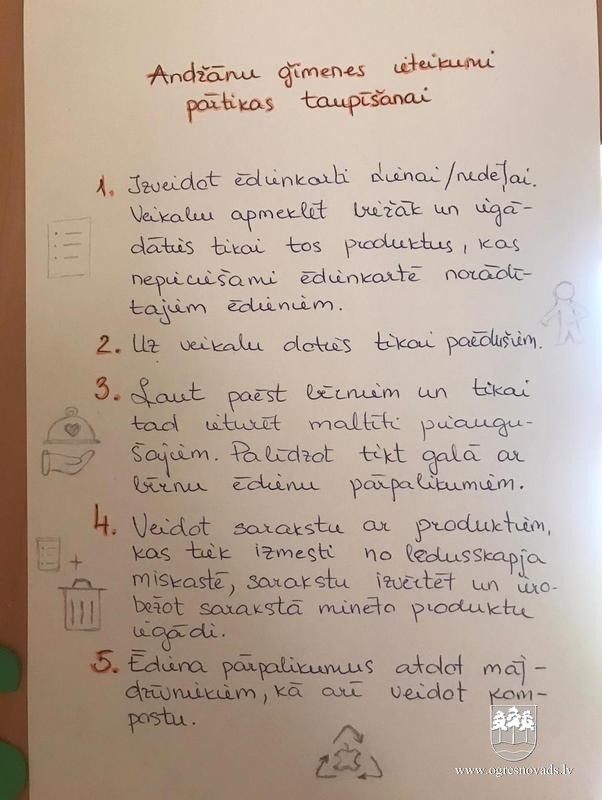 Andžānu ģimenes ieteikumi
pārtikas taupīšanai
1. Izveidot ēdienkarti dienai/nedēļai.
Veikalu apmeklēt biežāk un iegā-
dāties tikai tos produktus, kas
nepieciešami ēdienkartē norādī-
tajiem ēdieniem.
2. Uz veikalu doties tikai paēdušiem.
3. Ļaut paēst bērniem un tikai
tad ieturēt maltīti pieaugu-
šajiem. Palīdzot tikt galā ar
bērnu ēdienu pārpalikumiem.
4. Veidot sarakstu ar produktiem,
kas tiek izmesti no ledusskapja
miskastē, sarakstu izvērtēt un iero-
bežot sarakstā minēto produktu
iegādi.
5. Ēdiena pārpalikumus atdot māj-
dzīvniekiem, kā arī veidot kom-
postu.
www.ogresnovads.lv